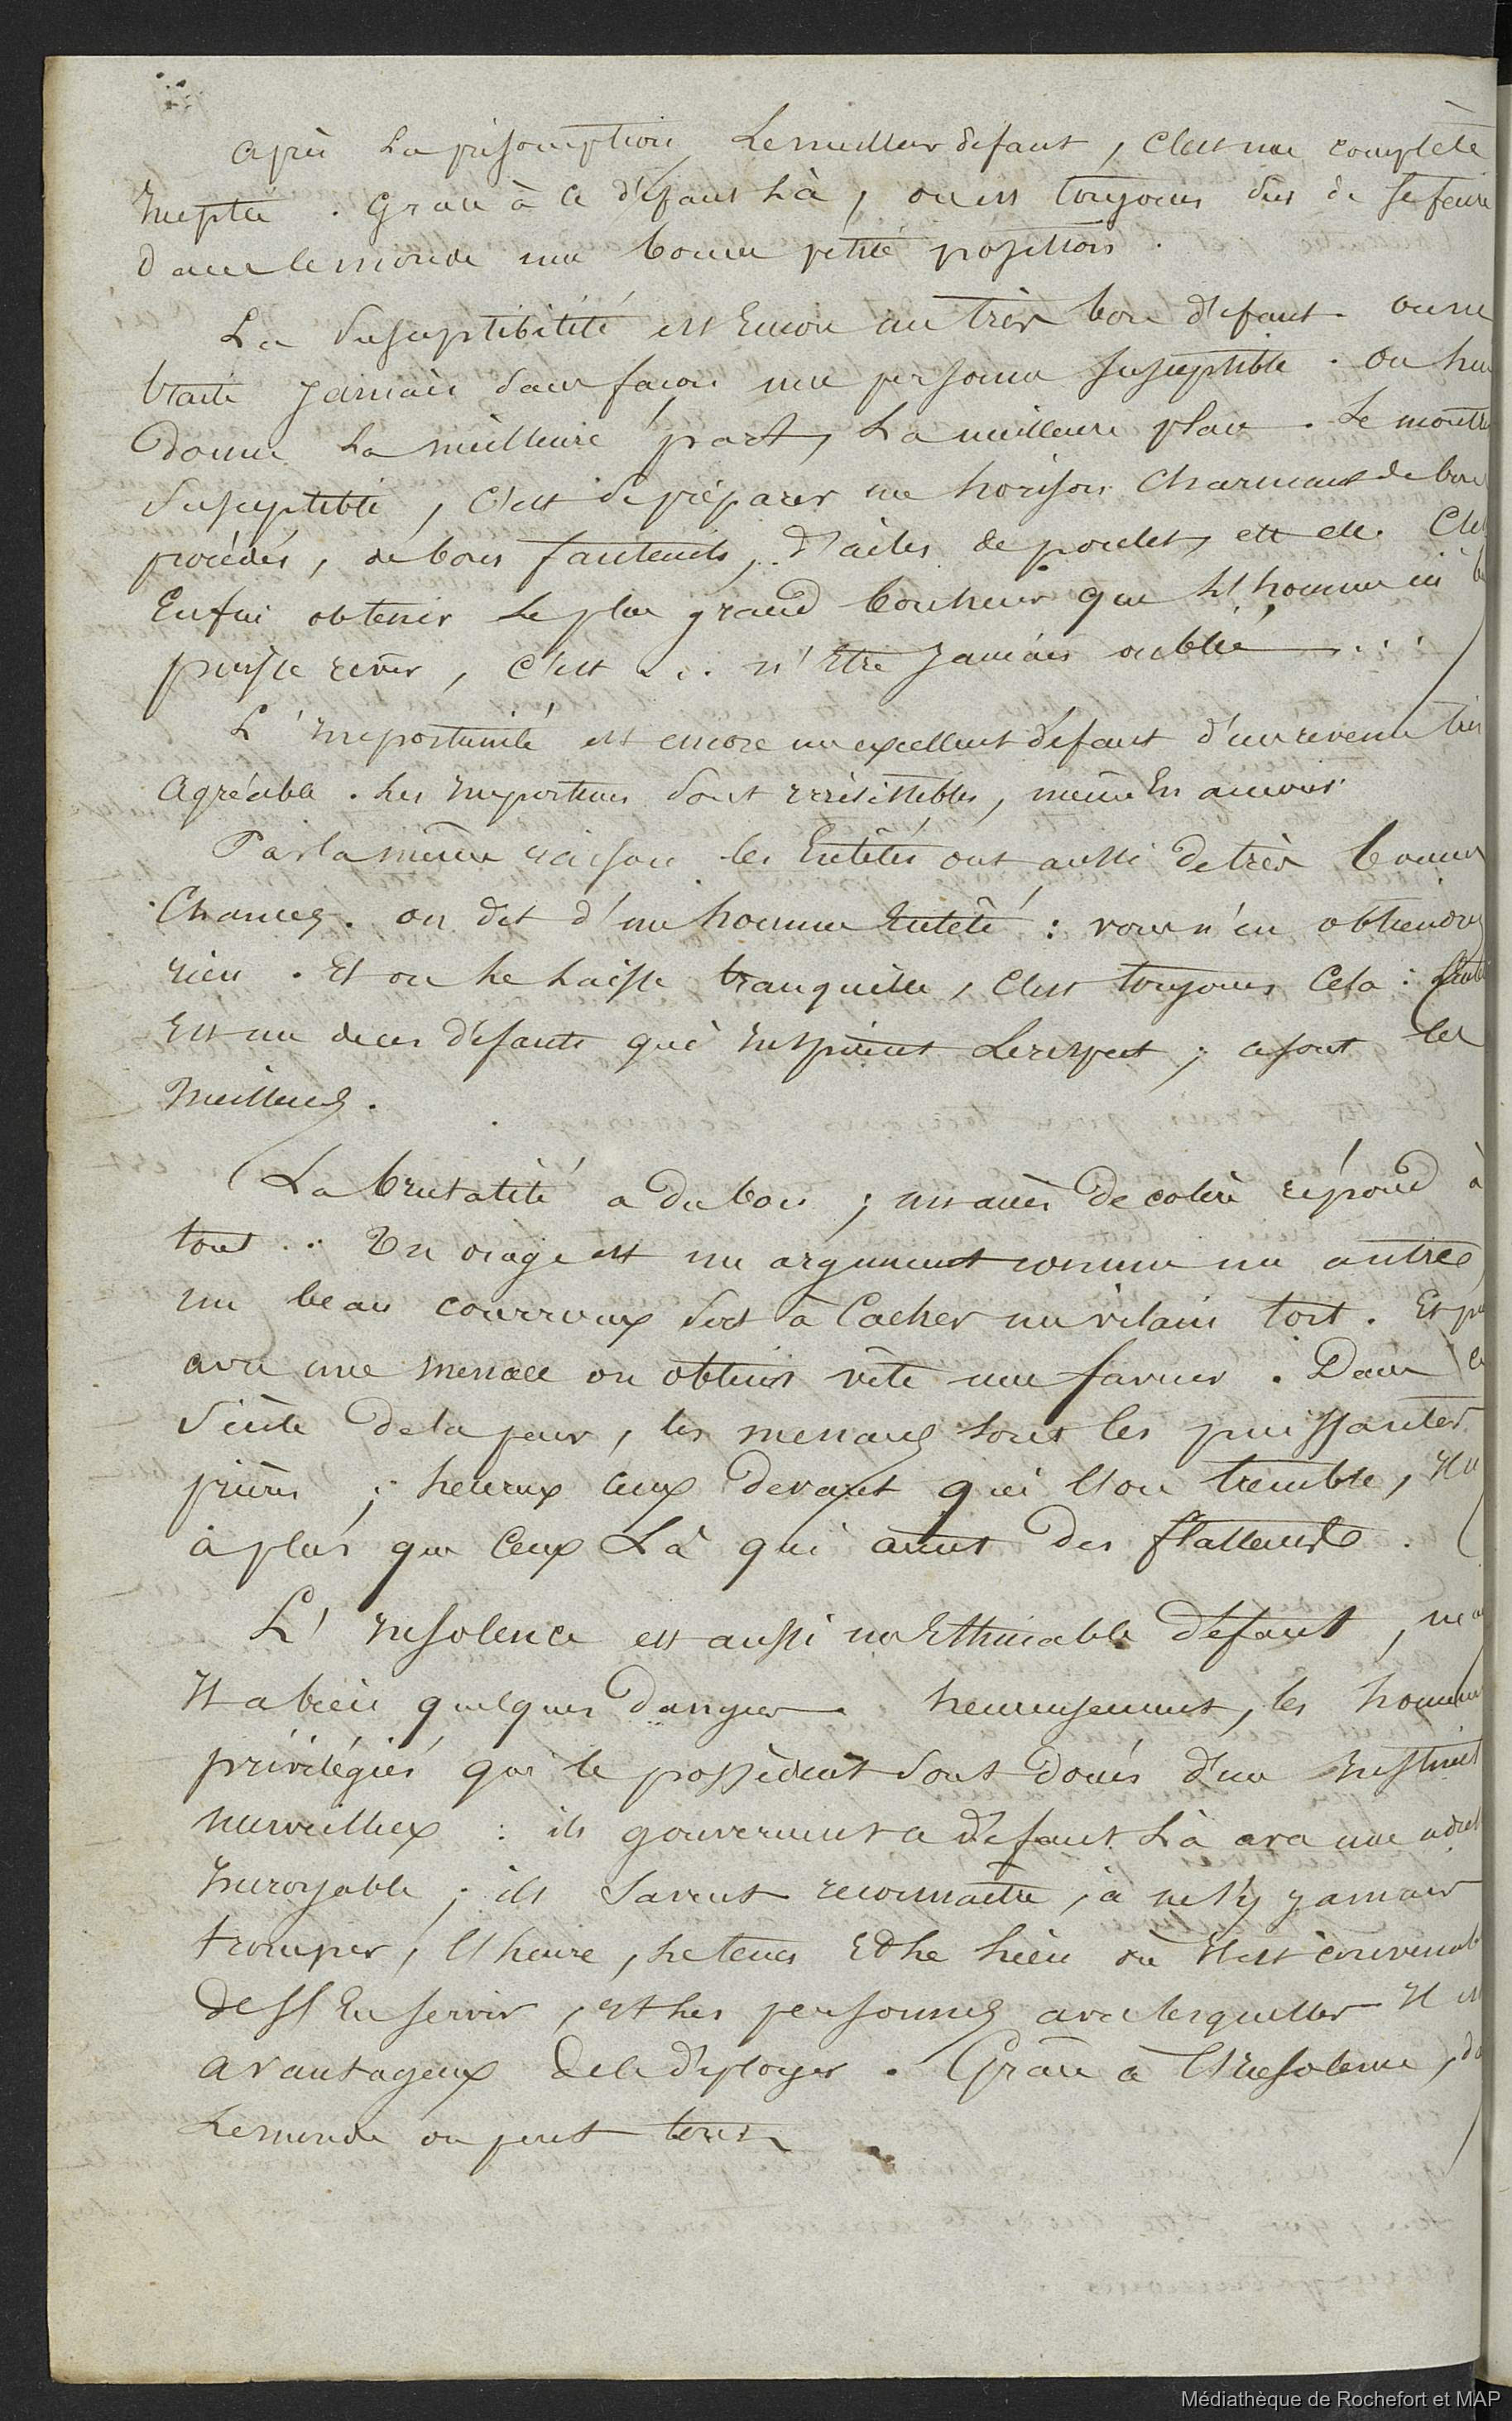 après La présomption, Le meilleur défaut, C'est une complète
Ineptie. Grace à ce défaut Là, on est toujours sûr de se faire
dans le monde une bonne petite position.
La Susceptibilité est Encore un très bon défaut. on ne
traite Jamais sans façon une personne susceptible. On lui
donne La meilleure part, La meilleure place. Se montrer
Susceptible, C'est se préparer un horison Charmant de bons
procédés, de bons fauteuils, d'ailes de poulet, etc etc. C'est
Enfin obtenir Le plus grand bonheur que L'homme ici bas
puisse rêver, C'est ... n'être Jamais oublié ...
L'Importunité est encore un excellent défaut d'un revenu très
Agréable. Les Importuns sont irrésistibles, même En amour.
Par la même raison les Entêtés ont aussi de très bonnes
Chances. on dit d'un homme Entêté : vous n'en obtiendrez
rien. Et on Le Laisse tranquille, C'est toujours Cela :
Est un de ces défauts qui Inspirent Le respect ; ce sont les
Meilleurs.
La brutalité a du bon ; un accès de colère répond à
tout .. Un orage est un argument comme un autre,
un beau courroux sert à Cacher un vilain tort. Et puis
avec une menace on obtient vite une faveur. Dans ce
Siècle de la peur, les menaces sont les puissantes
prières ; heureux ceux devant qui L'on tremble, Il n'y
a plus que Ceux Là qui aient des flatteurs.
L'Insolence est aussi un Estimable défaut,
Il a bien quelques dangers. heureusement, les hommes
privilégiés qui le possèdent sont doués d'un Instinct
merveilleux : ils gouvernent ce défaut Là avec une adresse
Incroyable ; ils savent reconnaître, à ne s'y jamais
tromper, L'heure, Le temps Et Le Lieu où Il est convenable
de s'En servir, et Les personnes avec lesquelles Il est
avantageux de le déployer. Grâce à L'Insolence, dans
Le monde on peut tout
Médiathèque de Rochefort et MAP